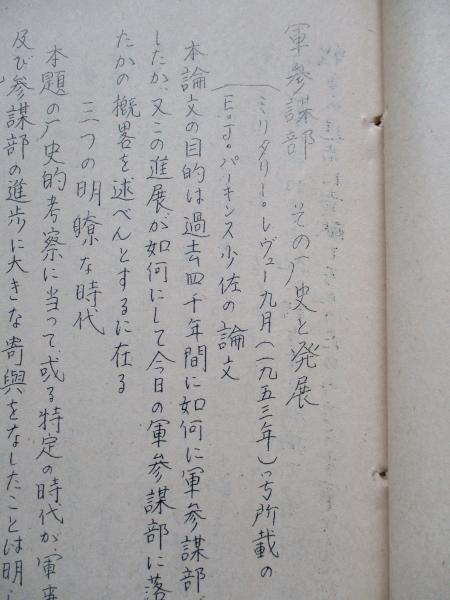 軍参謀部 その厂史と発展
(ミリタリー・レヴュー九月(一九五三年)号所載の
E・J・パーキンス少佐の論文
本論文の目的は過去四千年間に如何に軍参謀部
したか、又この進展が如何にして今日の軍参謀部に落
たかの概畧を述べんとするに在る
三つの明瞭な時代
本題の厂史的考察に当って、或る特定の時代が軍事
及び参謀部の進歩に大きな寄與をなしたことは明